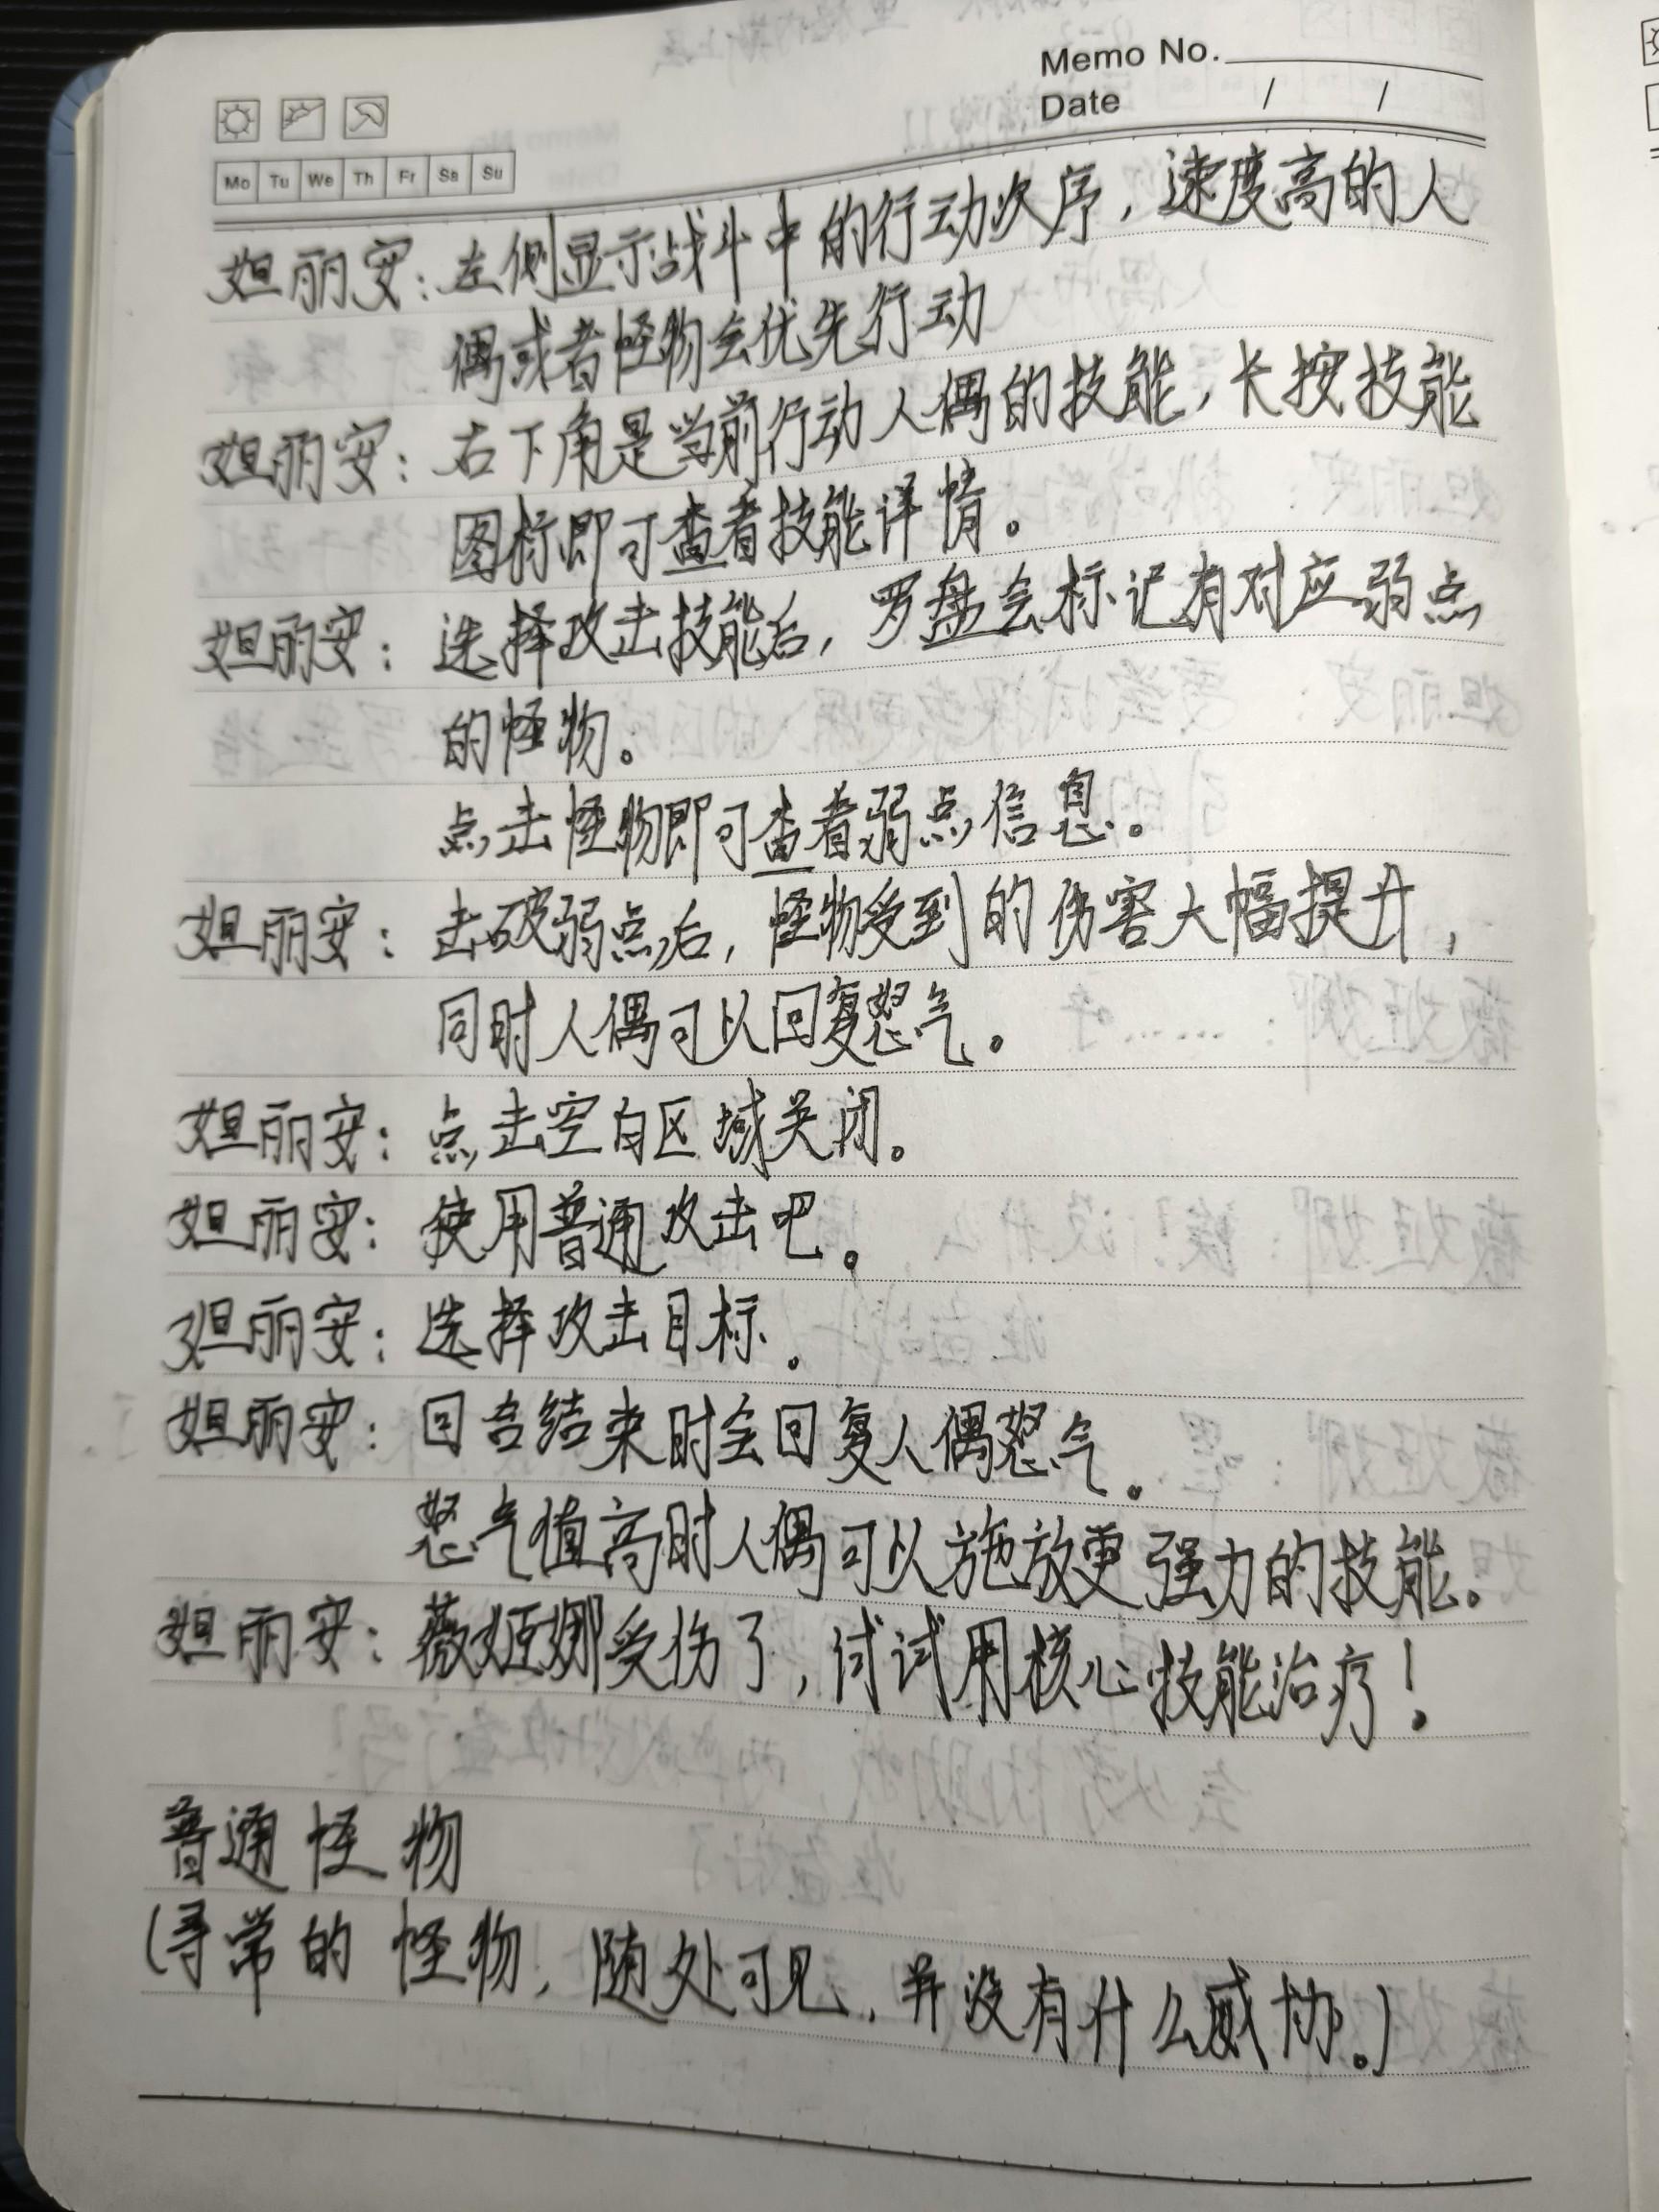 Memo No.
Date / /
Mo Tu We Th Fr Sa Su
妲丽安：左侧显示战斗中的行动次序，速度高的人
偶或者怪物会优先行动
妲丽安：右下角是当前行动人偶的技能，长按技能
图标即可查看技能详情。
妲丽安：选择攻击技能后，罗盘会标记有对应弱点
的怪物。
点击怪物即可查看弱点信息。
妲丽安：击破弱点后，怪物受到的伤害大幅提升，
同时人偶可以回复怒气。
妲丽安：点击空白区域关闭。
妲丽安：使用普通攻击吧。
妲丽安：选择攻击目标。
妲丽安：回合结束时会回复人偶怒气。
怒气值高时人偶可以施放更强力的技能。
妲丽安：薇姬娜受伤了，试试用核心技能治疗！
普通怪物
(寻常的怪物，随处可见，并没有什么威胁。)